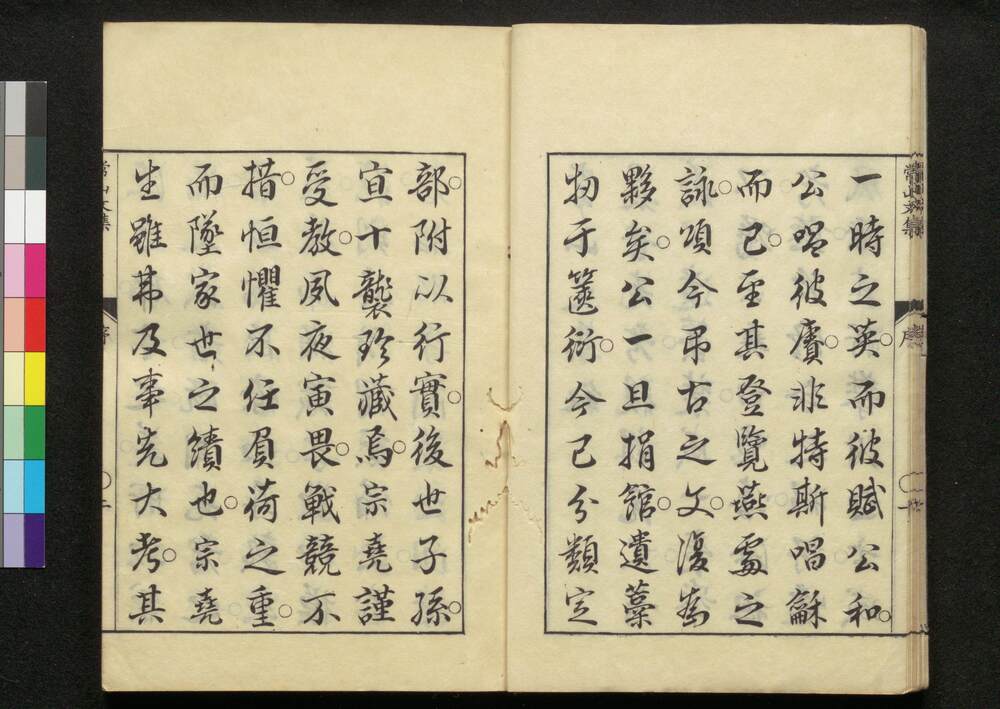 常山文集　序　一
一時之英○而彼賦公和○
公唱彼賡○非特斯唱龢
而已○至其登覽燕處之
詠○頌今弔古之文○復為
夥矣○公一旦捐館○遺藁
牣于篋衍○今已分類定
部○附以行實○後世子孫○
宜十襲珍藏焉○宗堯謹
受教○夙夜寅畏○戰競不
措○恒懼不任負荷之重○
而墜家世之績也○宗堯
生雖弗及事先大考○其
常山文集　序　二